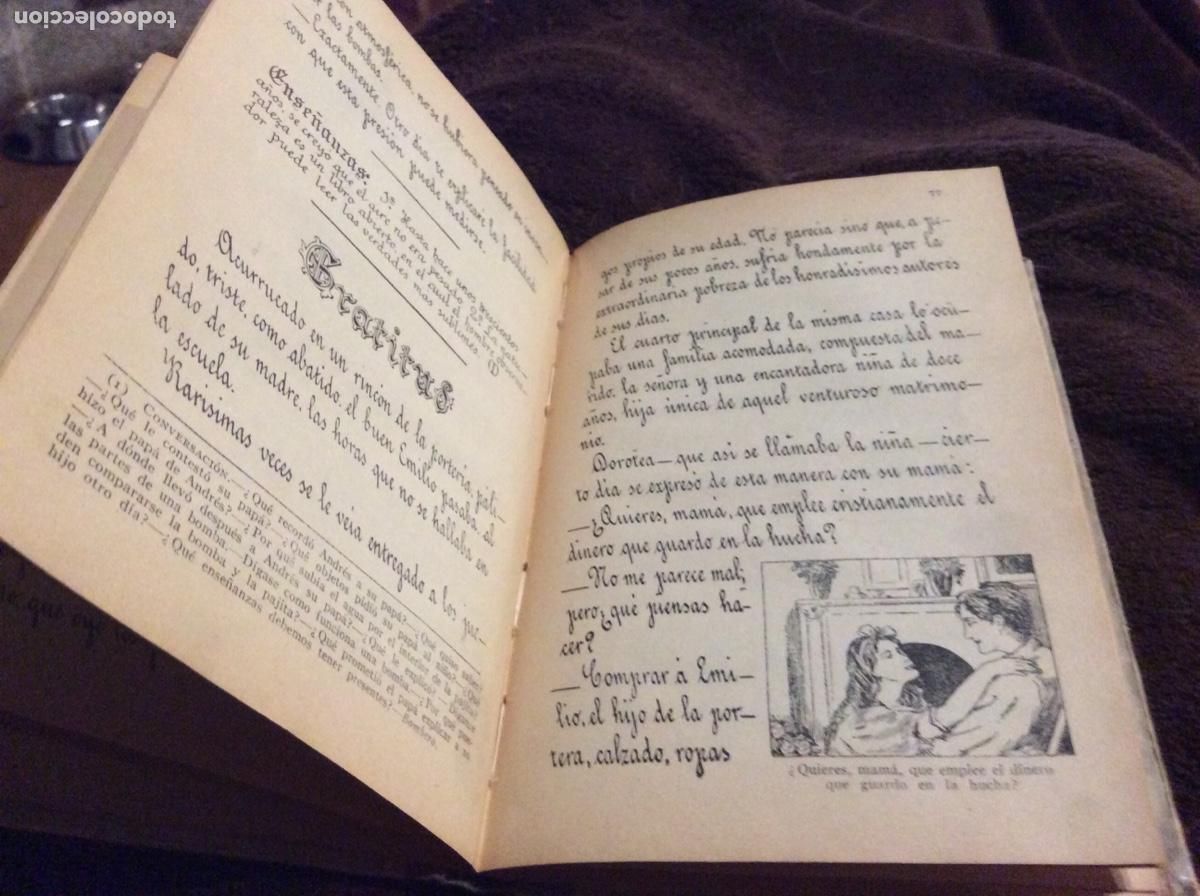 todocoleccion
ón atmosférica, no se hubiera pensado en cons-
las bombas.
—Exactamente. Otro dia te explicaré la
con que esta presión puede medirse.
Enseñanzas. 1ª Hasta hace unos trescientos
años, se creyó que el aire no era pesado. 2ª La natu-
raleza es un libro abierto en el cual el hombre
puede leer las verdades mas sublimes. (1)
Gratitud
Acurrucado en un rincón de la portería, páli-
do, triste, como abatido, el buen Emilio pasaba, al
lado de su madre, las horas que no se hallaba en
la escuela.
Rarisimas veces se le veia entregado a los jue-
(1) CONVERSACIÓN.—¿Qué recordó Andrés a su papá?—¿Qué quiso saber?
—¿Qué le contestó su papá?—¿Qué objetos pidió su papá al niño?—¿Qué
hizo el papá de Andrés?—¿Por qué subía el agua por el interior de la pajita?
—¿A dónde llevó después a Andrés su papá?—¿Qué le explicó?—Díganse
las partes de una bomba.—Dígase como funciona una bomba.—¿Por qué pue-
den compararse la bomba y la pajita?—¿Qué prometió el papá explicar a su
hijo otro día?—¿Qué enseñanzas debemos tener presentes?—
77
gos propios de su edad. No parecia sino que, a pe-
sar de sus pocos años, sufria hondamente por la
extraordinaria pobreza de los honradísimos autores
de sus dias.
El cuarto principal de la misma casa lo ocu-
paba una familia acomodada, compuesta del ma-
rido, la señora y una encantadora niña de doce
años, hija única de aquel venturoso matrimo-
nio.
Dorotea — que asi se llamaba la niña — cier-
to dia se expresó de esta manera con su mamá:
—¿Quieres, mamá, que emplee cristianamente el
dinero que guardo en la hucha?
—No me parece mal;
pero ¿qué piensas ha-
cer?
—Comprar á Emi-
lio, el hijo de la por-
tera, calzado, ropas
¿Quieres, mamá, que emplee el dinero
que guardo en la hucha?